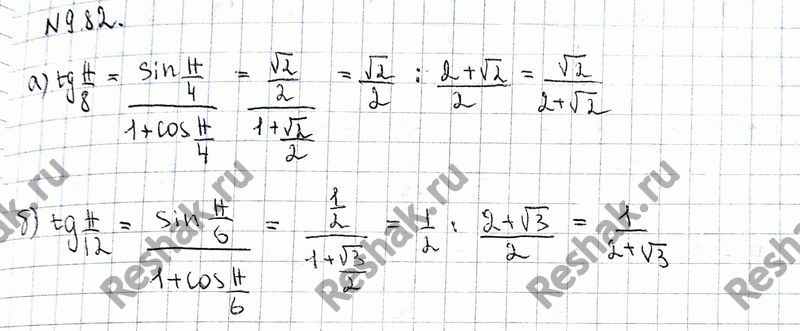 N982.
а) tg π/8 = (sin π/4)/(1+cos π/4) = (√2/2)/(1+√2/2) = √2/2 : (2+√2)/2 = √2/(2+√2)
б) tg π/12 = (sin π/6)/(1+cos π/6) = (1/2)/(1+√3/2) = 1/2 : (2+√3)/2 = 1/(2+√3)
Reshak.ru
Reshak.ru
Reshak.ru
Reshak.ru
Reshak.ru